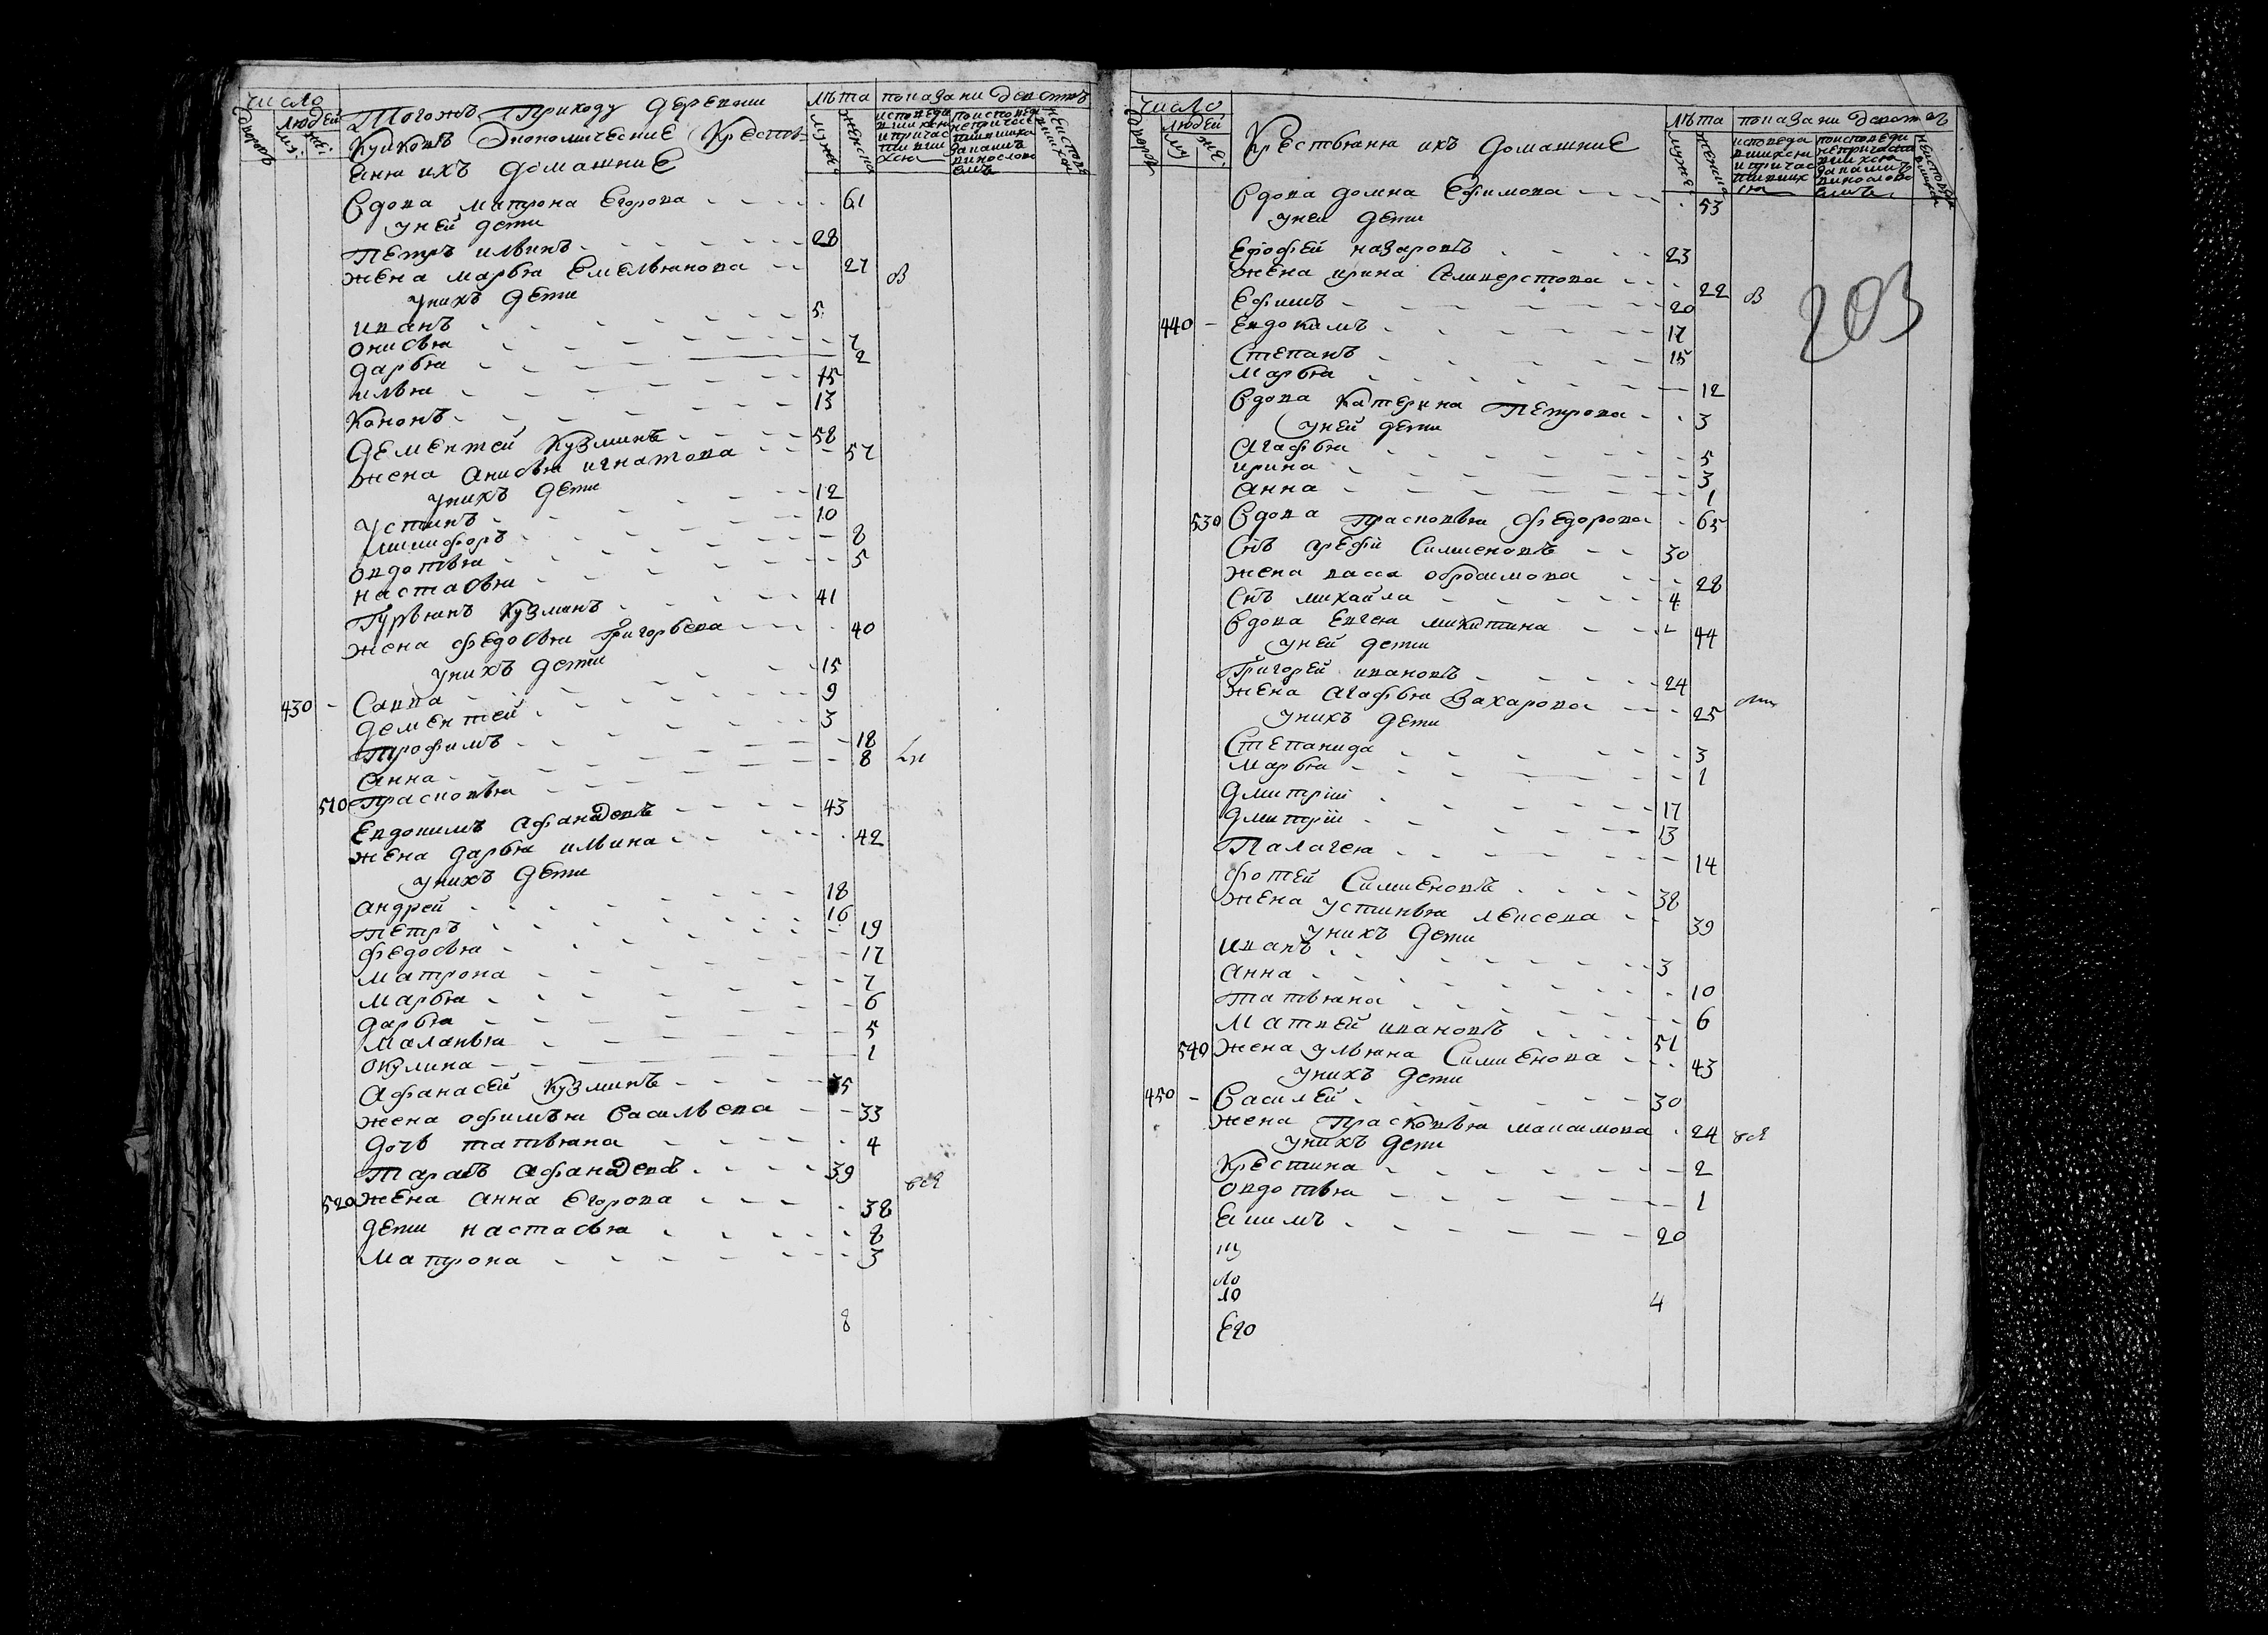 число
людей
Тогожъ Приходу деревни
Кушковъ Экономические Кресть-
яня ихъ домашние
лѣта показани действъ
Вдова матрона Егорова 61
у ней дети
Петръ ильинъ 28
жена марья Емельянова 27
у нихъ дети
иванъ 5
онисья 7
дарья 2
илья 15
Кононъ 13
Дементей Кузминъ 58
жена Анисья игнатова 57
у нихъ дети
Устинъ 12
10
овдотья 8
настасья 5
Гурьянъ Кузминъ 41
жена федосья Григорьева 40
у нихъ дети
430 Савва 15
дементей 9
Трофимъ 3
Анна 18
510 Прасковья 8
Евдокимъ Афанасевъ 43
жена дарья ильина 42
у нихъ дети
андрей 18
петръ 16
федосья 19
матрона 17
марья 7
дарья 6
маланья 5
окулина 1
Афанасей Кузминъ 35
жена офимья Васильева 33
дочь татьяна 4
Тарасъ Афанасевъ 39
520 жена Анна Егорова 38
дети настасья 8
матрона 3
8
число
людей
Крестьяня ихъ домашние
лѣта показани действъ
Вдова домна Ефимова 53
у ней дети
Ерофей назаровъ 23
жена ирина Селиверстова 22
203
Ефимъ 20
440 Евдокимъ 17
Степанъ 15
марья 12
Вдова Катерина Петрова 3
у ней дети
Агафья 5
ирина 3
анна 1
530 Вдова Прасковья федорова 65
Снъ арефи Симиеновъ 30
жена васса обросимова 28
Снъ михайла 4
Вдова Евгея микитина 44
у ней дети
Григорей ивановъ 24
жена агафья Захарова 25
у нихъ дети
Степанида 3
марья 1
дмитрии 17
дмитрии 13
Палагея 14
фотей Симиеновъ 38
жена устинья лексева 39
у нихъ дети
иванъ 3
анна 10
татьяна 6
матвей ивановъ 51
540 жена ульяна Симиенова 43
у нихъ дети
450 Василей 30
жена Прасковья максимова 24
у нихъ дети
Крестина 2
овдотья 1
Екимъ 20
4
Его